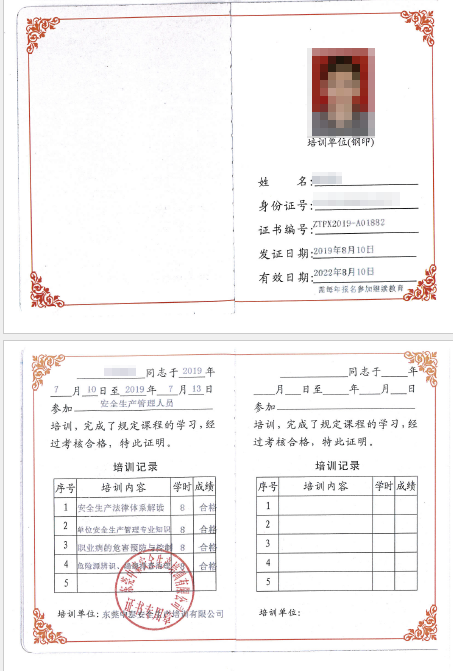 培训单位(钢印)
姓 名:
身份证号:
证书编号:ZTPX2019-A01882
发证日期:2019年8月10日
有效日期:2022年8月10日
需每年报名参加继续教育
同志于2019年
7月10日至2019年7月13日
参加 安全生产管理人员
培训,完成了规定课程的学习,经
过考核合格,特此证明。
培训记录
序号 培训内容 学时 成绩
1 安全生产法律体系解读 8 合格
2 单位安全生产管理专业知识 8 合格
3 职业病的危害预防与控制 8 合格
4 危险源辨识、 8 合格
5
证书专用章
培训单位:东莞 培训有限公司
同志于 年
月 日至 年 月 日
参加
培训,完成了规定课程的学习,经
过考核合格,特此证明。
培训记录
序号 培训内容 学时 成绩
1
2
3
4
5
培训单位: